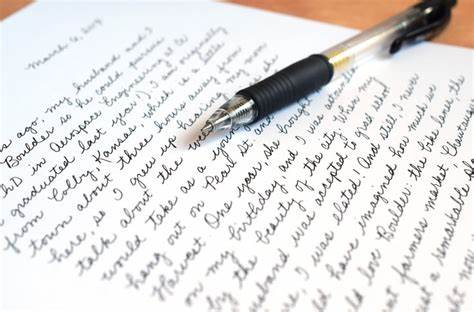 March 6, 20
s ago, my husband and I
Boulder so he could pursue
hD in Aerospace Engineering at C
graduated last year!) I am originally
from Colby, Kansas, which is a little
town about three hours away from
here, so I grew up hearing my mom
talk about the
would take as a youn
hang out on Pearl St. and
Harvest. One year, she brought
on my birthday, and I was
by the beauty of the city. When my
husband was accepted to grad school
I was elated! And still, I never
ld have imagined how much we
ld love Boulder: the bike lanes, the
farmers market,
just a remarkable